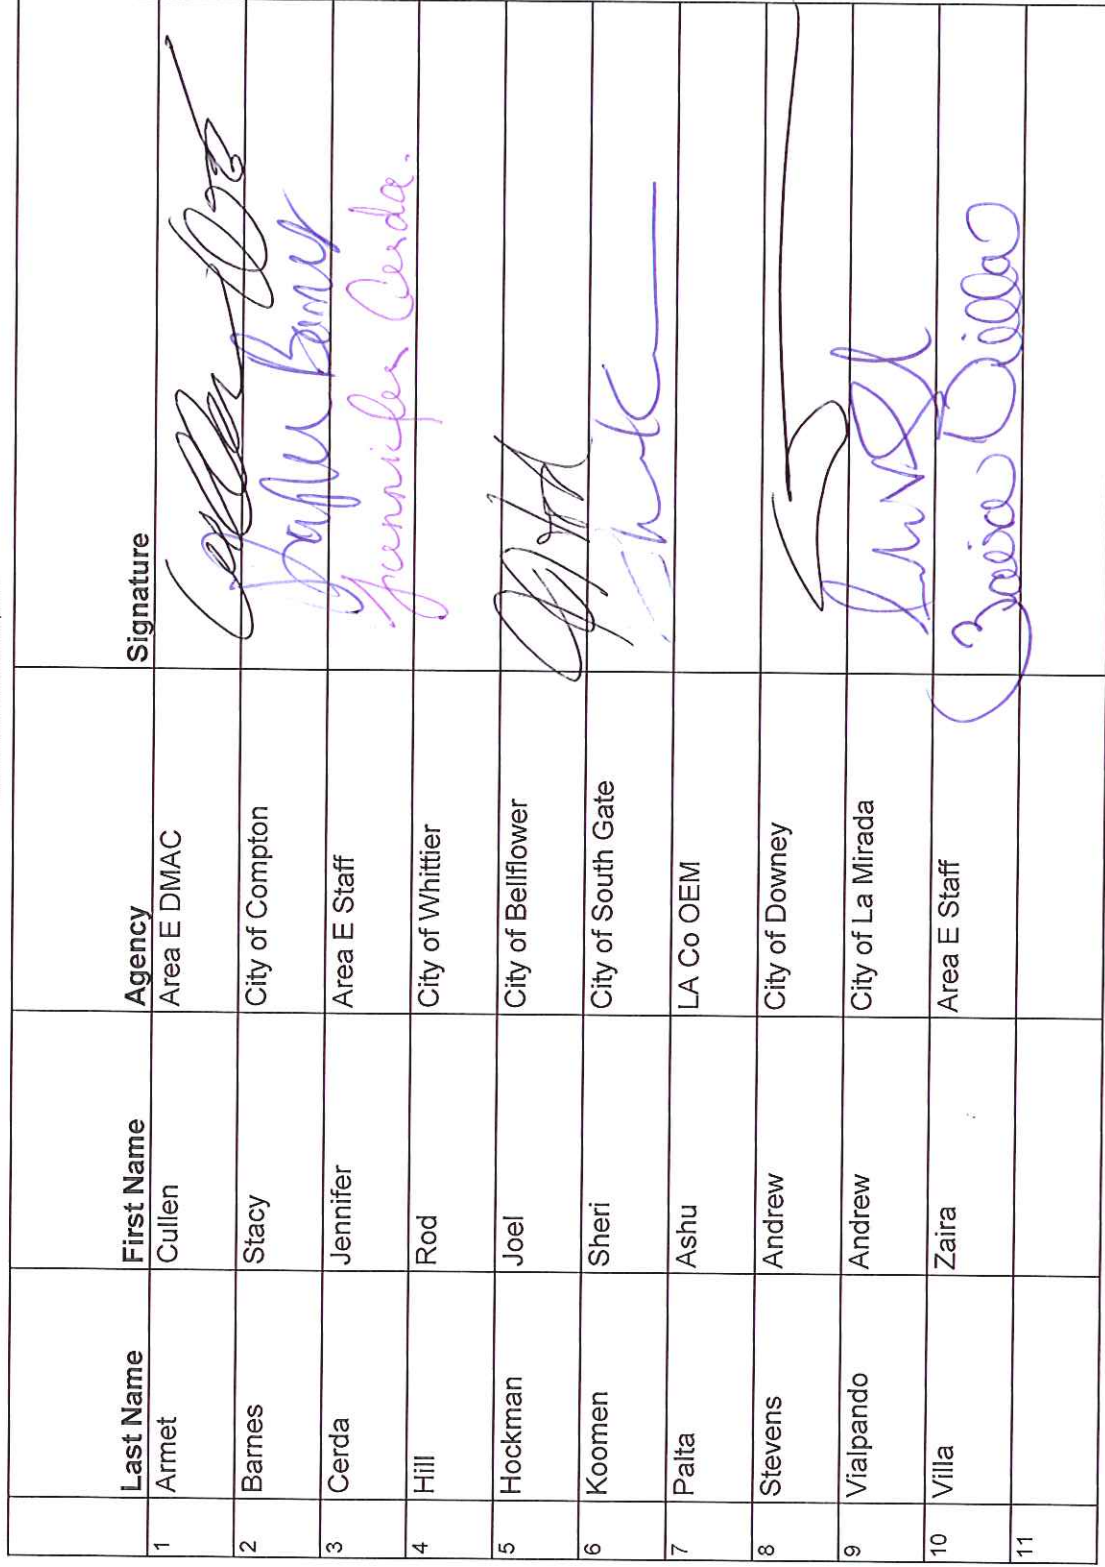 Last Name First Name Agency Signature
1 Armet Cullen Area E DMAC
2 Barnes Stacy City of Compton
3 Cerda Jennifer Area E Staff Jennifer Cerda.
4 Hill Rod City of Whittier
5 Hockman Joel City of Bellflower
6 Koomen Sheri City of South Gate
7 Palta Ashu LA Co OEM
8 Stevens Andrew City of Downey
9 Vialpando Andrew City of La Mirada
10 Villa Zaira Area E Staff Zaira Villa
11